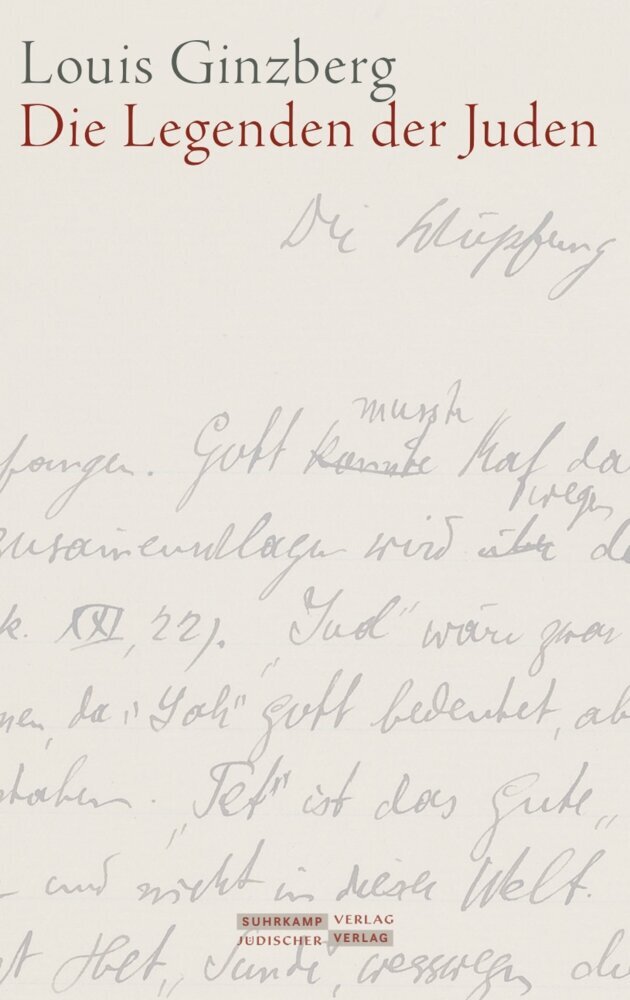 Louis Ginzberg
Die Legenden der Juden
Die Schöpfung
musste
fangen. Gott konnte Kaf da
wegen
zusammenschlagen wird über de
k. XXI, 22). „Jud“ wäre zwar
nen, da „Jah“ Gott bedeutet, ab
staben. „Tet“ ist das Gute,
und nicht in dieser Welt.
SUHRKAMP VERLAG
JÜDISCHER VERLAG
t Het, „Sünde“, weswegen die